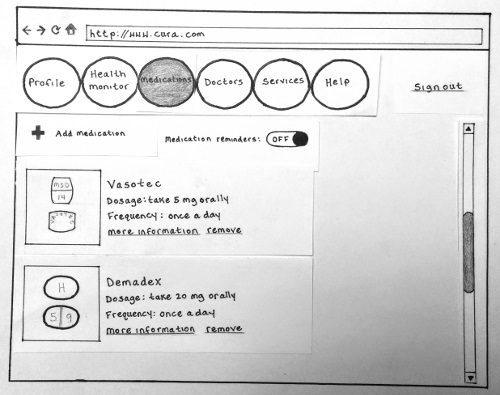 http://www.cura.com
Profile
Health
monitor
Medications
Doctors
Services
Help
Sign out
+ Add medication
Medication reminders: OFF
MSD
14
Vasotec
Dosage: take 5 mg orally
Frequency: once a day
more information remove
H
5 9
Demadex
Dosage: take 20 mg orally
Frequency: once a day
more information remove